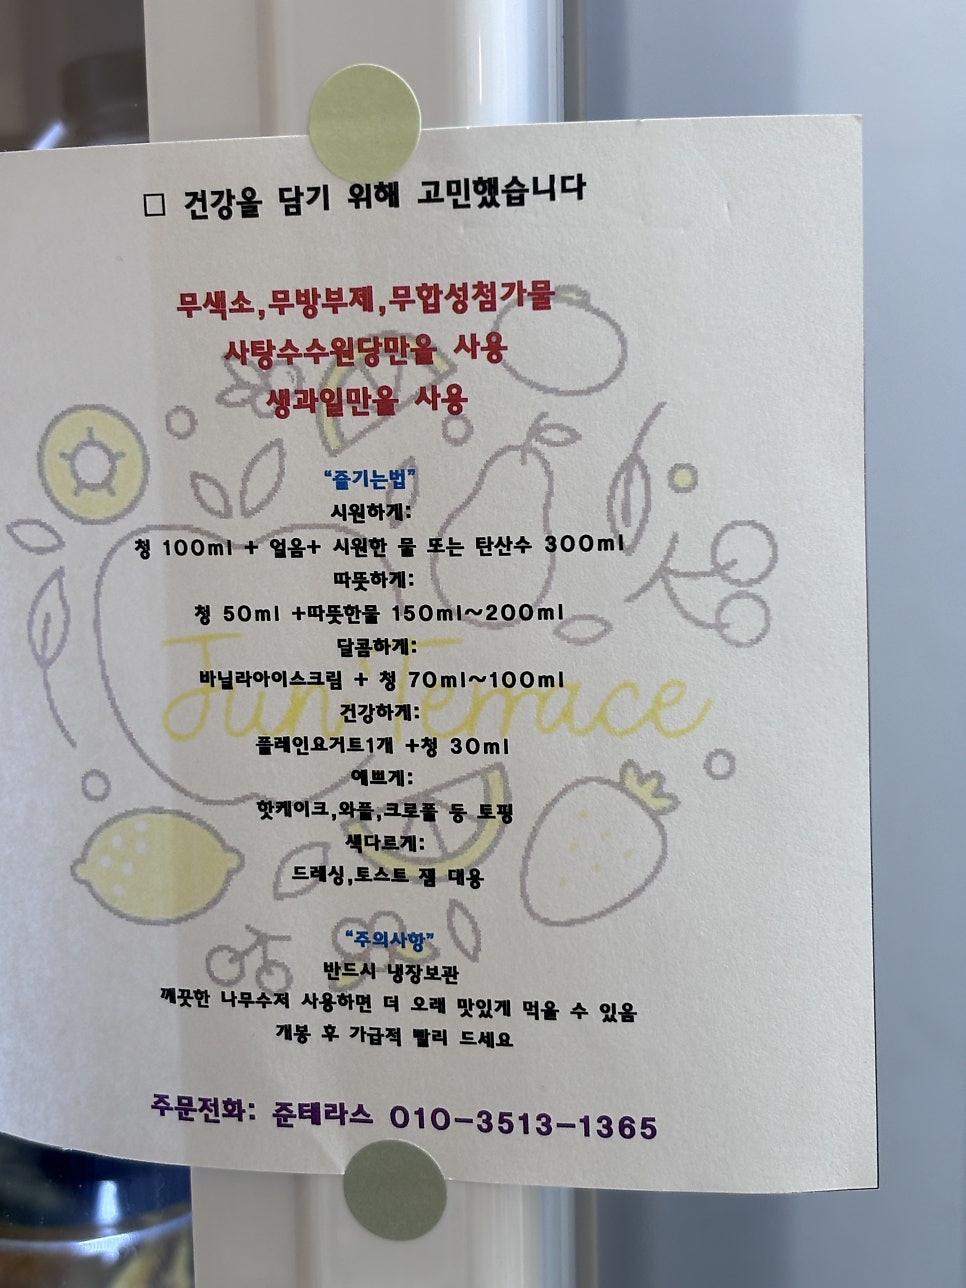 □ 건강을 담기 위해 고민했습니다
무색소,무방부제,무합성첨가물
사탕수수원당만을 사용
생과일만을 사용
“즐기는법”
시원하게:
청 100ml + 얼음+ 시원한 물 또는 탄산수 300ml
따뜻하게:
청 50ml +따뜻한물 150ml~200ml
달콤하게:
바닐라아이스크림 + 청 70ml~100ml
Jun Terrace
건강하게:
플레인요거트1개 +청 30ml
예쁘게:
핫케이크,와플,크로플 등 토핑
색다르게:
드레싱,토스트 잼 대용
“주의사항”
반드시 냉장보관
깨끗한 나무수저 사용하면 더 오래 맛있게 먹을 수 있음
개봉 후 가급적 빨리 드세요
주문전화: 준테라스 010-3513-1365